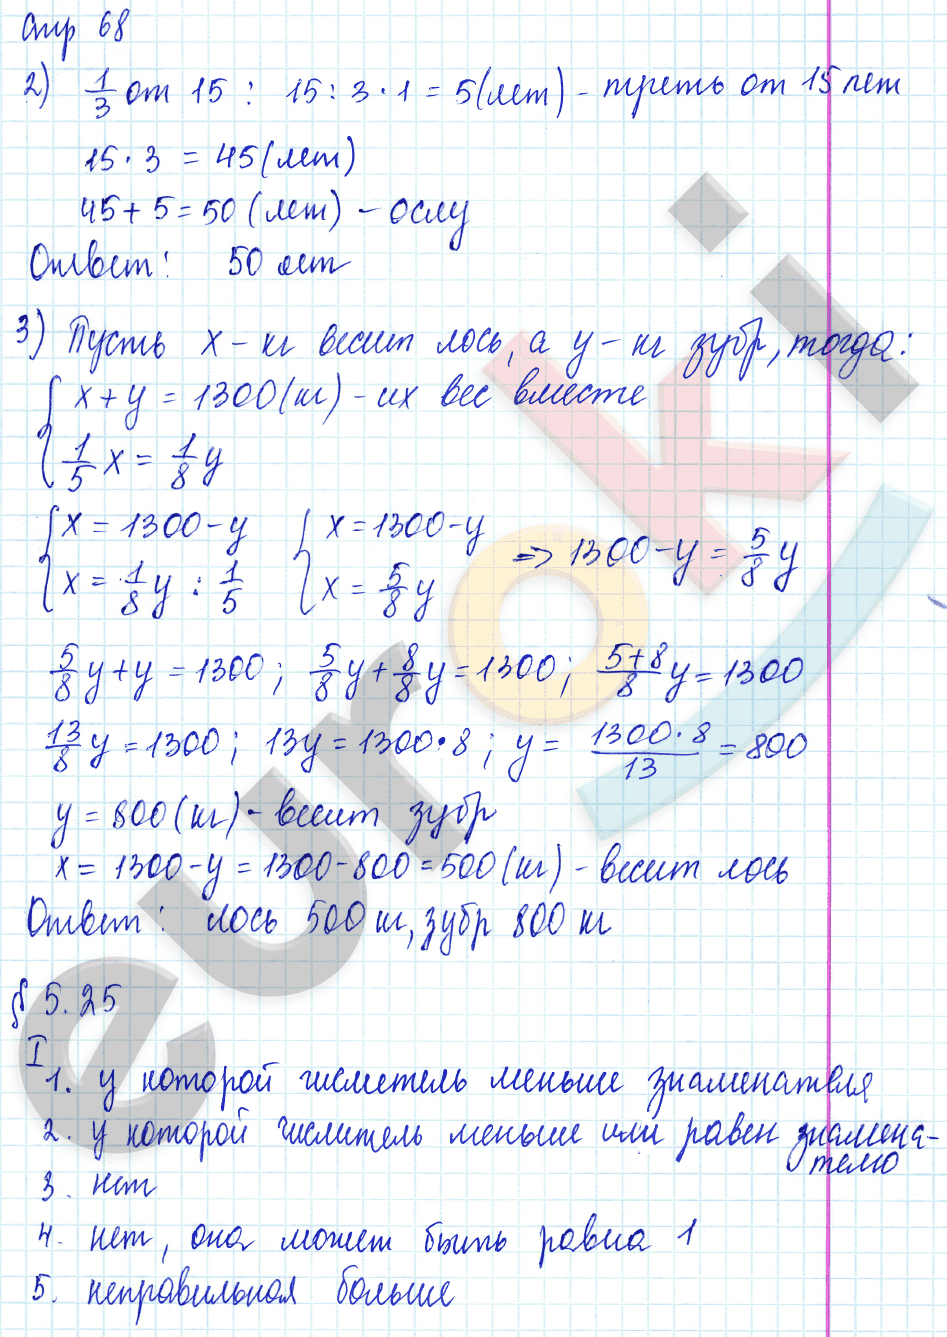 стр 68
2) 1/3 от 15 : 15 : 3 · 1 = 5 (лет) - треть от 15 лет
15 · 3 = 45 (лет)
45 + 5 = 50 (лет) - ослу
Ответ: 50 лет
3) Пусть x - кг весит лось, а y - кг зубр, тогда:
{ x + y = 1300 (кг) - их вес вместе
{ 1/5 x = 1/8 y
{ x = 1300 - y { x = 1300 - y => 1300 - y = 5/8 y
{ x = 1/8 y : 1/5 { x = 5/8 y
5/8 y + y = 1300; 5/8 y + 8/8 y = 1300; (5+8)/8 y = 1300
13/8 y = 1300; 13y = 1300 · 8; y = (1300 · 8)/13 = 800
y = 800 (кг) - весит зубр
x = 1300 - y = 1300 - 800 = 500 (кг) - весит лось
Ответ: лось 500 кг, зубр 800 кг
§ 5.25
I
1. у которой числитель меньше знаменателя
2. у которой числитель меньше или равен знамена-
телю
3. нет
4. нет, она может быть равна 1
5. неправильная больше
euroki